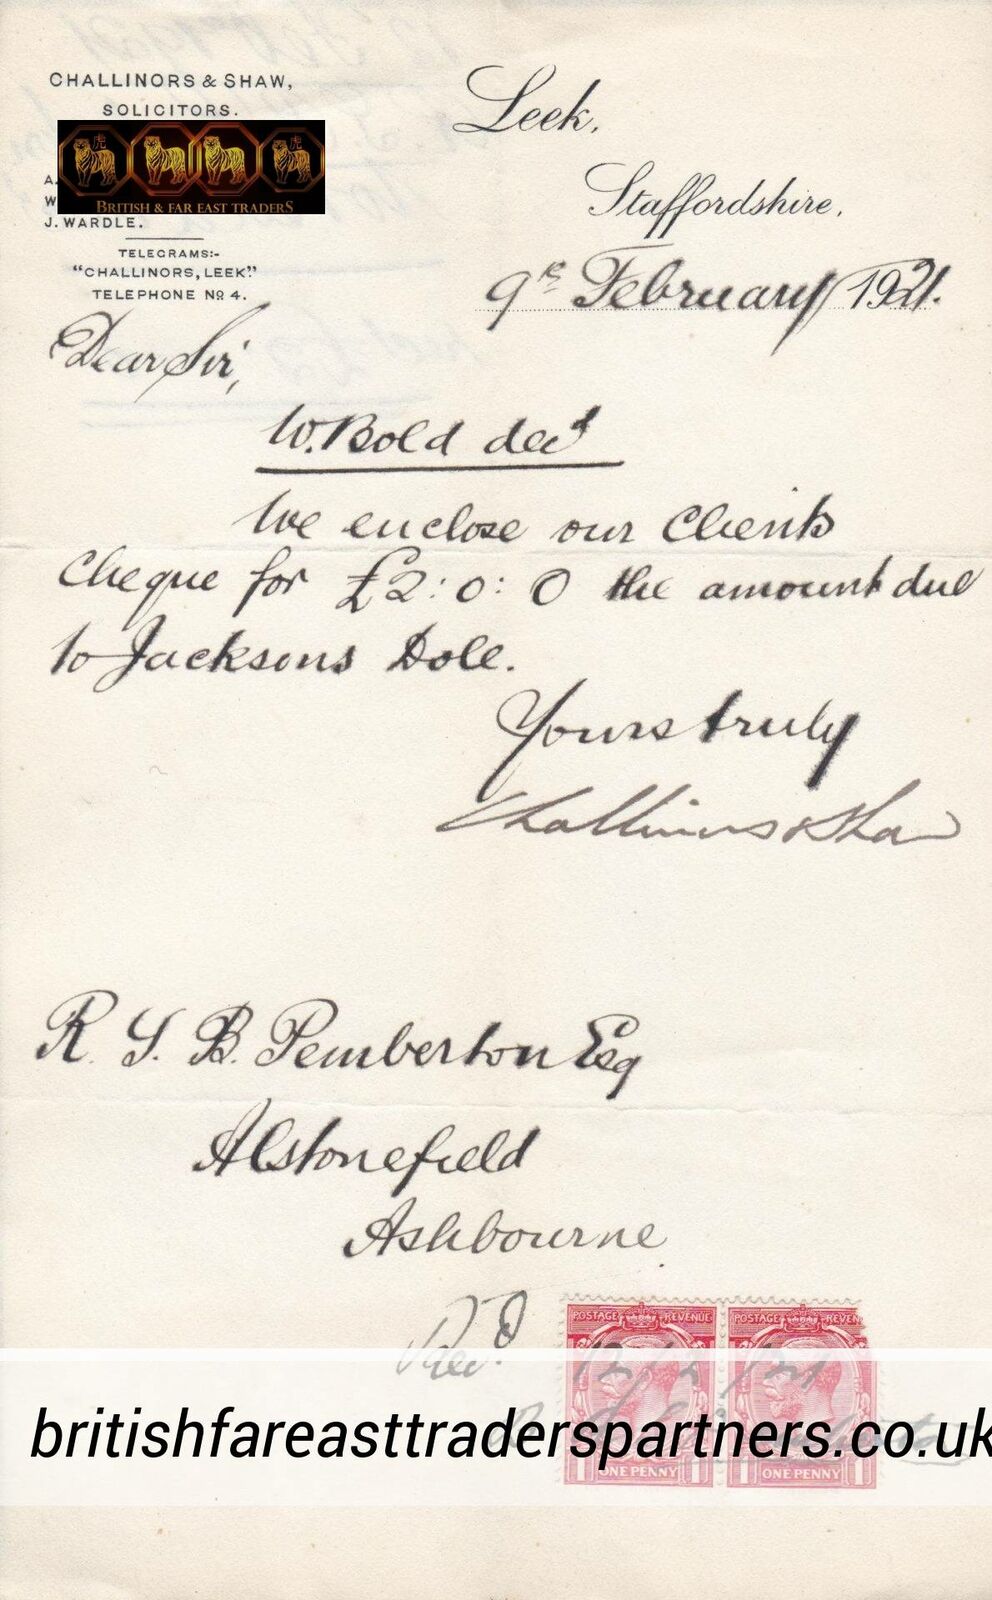 CHALLINORS & SHAW,
SOLICITORS.
BRITISH & FAR EAST TRADERS
A.
W
J. WARDLE.
TELEGRAMS:-
"CHALLINORS, LEEK."
TELEPHONE No 4.
Leek,
Staffordshire,
9th February 1921.
Dear Sir,
W. Bold decd
We enclose our Clients
Cheque for £2:0:0 the amount due
to Jacksons Dole.
Yours truly
Challinors & Shaw
R. S. B. Pemberton Esq
Alstonefield
Ashbourne
Recd.
12/2/21
POSTAGE REVENUE
POSTAGE REVEN
1 ONE PENNY 1
1 ONE PENNY
britishfareasttraderspartners.co.uk